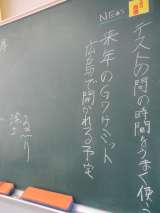 テストの間の時間をうまく使う
NEWS
来年のG7サミット
広島で開かれる予定